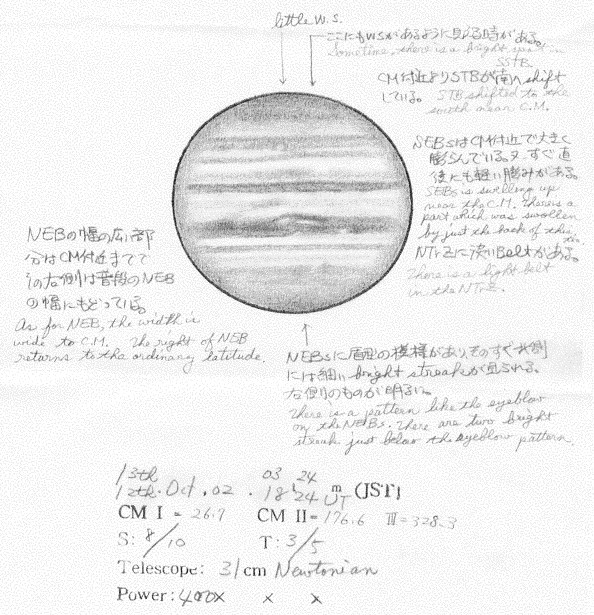 little W.S.
ここにもWSがあるように見える時がある。
Sometime, there is a bright spot in
SSTB.
CM付近よりSTBが南へshift
している。 STB shifted to the
south near C.M.
SEBsはCM付近で大きく
膨らんでいる。又、すぐ直
後にも軽い膨みがある。
SEBs is swelling up
near the C.M. There is a
part which was swollen
by just the back of this,
too.
NTrZに淡いBeltがある。
There is a light belt
in the NTrZ.
NEBの幅の広い部
分はCM付近までで
その右側は普段のNEB
の幅にもどっている。
As for NEB, the width is
wide to C.M. The right of NEB
returns to the ordinary latitude.
NEBsに眉型の模様がありそのすぐ北側
には細いbright streakが見られる。
右側のものが明るい。
There is a pattern like the eyeblow
on the NEBs. There are two bright
streak just below the eyeblow pattern.
13th 03 24
12th. Oct. 02 . 18h 24m UT (JST)
CM I = 26.7 CM II = 176.6 III = 328.3
S: 8/10 T: 3/5
Telescope: 31cm Newtonian
Power: 400x x x